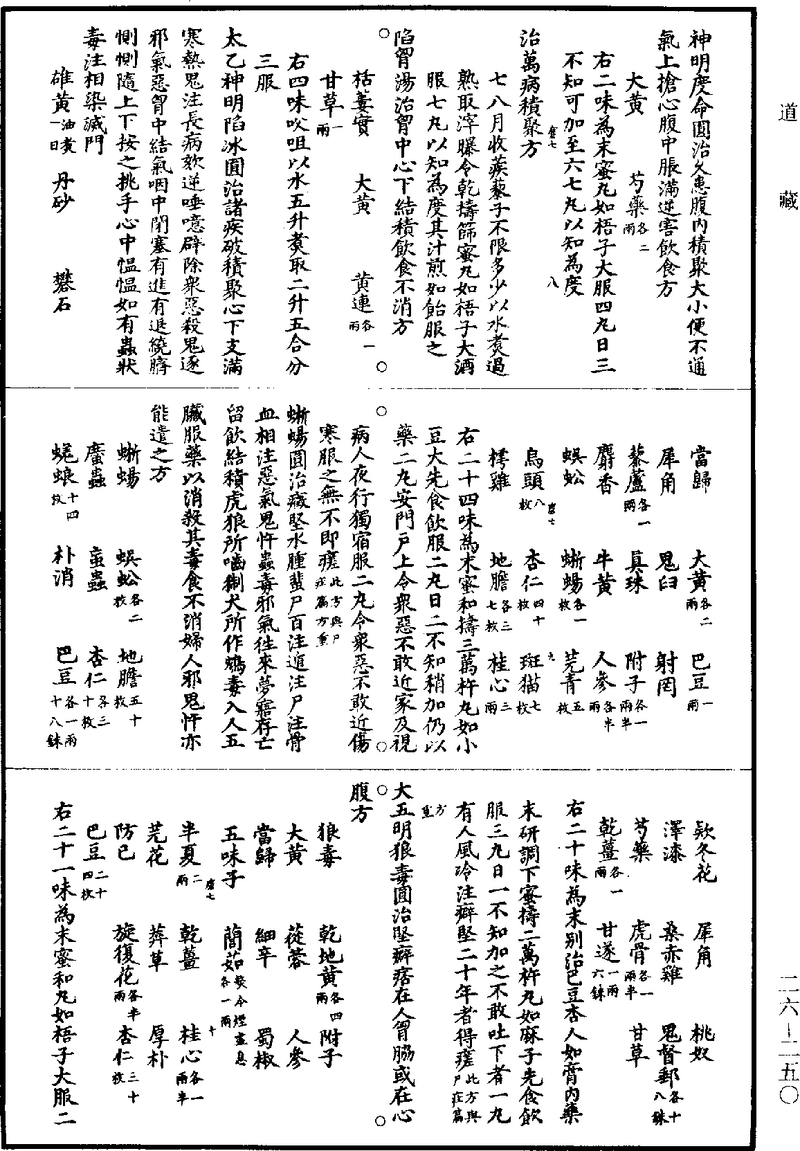 道藏
神明度命圓治久患腹内積聚大小便不通
氣上搶心腹中脹滿逆害飲食方
大黃 芍藥各二兩
右二味為末蜜丸如梧子大服四丸日三
不知可加至六七丸以知為度
治萬病積聚方
七八月收蒺藜子不限多少以水煑過
熟取滓曝令乾擣篩蜜丸如梧子大酒
服七丸以知為度其汁煎如飴服之
陷胷湯治胷中心下結積飲食不消方
栝蔞實 大黃 黃連各一兩
甘草一兩
右四味㕮咀以水五升煑取二升五合分
三服
太乙神明陷冰圓治諸疾破積聚心下支滿
寒熱鬼注長病欬逆唾噫辟除衆惡殺鬼逐
邪氣惡胷中結氣咽中閉塞有進有退繞臍
惻惻隨上下按之挑手心中愠愠如有蟲狀
毒注相染滅門
雄黃油煑一日 丹砂 礬石
當歸 大黃各二兩 巴豆一兩
犀角 鬼臼 射罔
藜蘆各一兩 真珠 附子各一兩半
麝香 牛黃 人參各半兩
蜈蚣 蜥蜴各一枚 芫青五枚
烏頭八枚 杏仁四十枚 斑猫七枚
樗雞 地膽各三七枚 桂心三兩
右二十四味為末蜜和擣三萬杵丸如小
豆大先食飲服二丸日二不知稍加仍以
藥二丸安門戸上令衆惡不敢近家及視
病人夜行獨宿服二丸令衆惡不敢近傷
寒服之無不即瘥此方與尸疰篇方重
蜥蜴圓治癥堅水腫蜚尸百注遁注尸注骨
血相注惡氣鬼忤蟲毒邪氣往來夢寤存亡
留飲結積虎狼所嚙猘犬所作鴆毒入人五
臟服藥以消殺其毒食不消婦人邪鬼忤亦
能遣之方
蜥蜴 蜈蚣各二枚 地膽五十枚
䗪蟲 䖟蟲 杏仁各三十枚
蜣蜋十四枚 朴消 巴豆各一兩十八銖
欵冬花 犀角 桃奴
澤漆 桑赤雞 鬼督郵各十八銖
芍藥 虎骨各一兩半 甘草
乾薑各一兩 甘遂一兩六銖
右二十味為末别治巴豆杏人如膏内藥
末研調下蜜擣二萬杵丸如麻子先食飲
服三丸日一不知加之不敢吐下者一丸
有人風冷注癖堅二十年者得瘥此方與尸疰篇
方重
大五明狼毒圓治堅癖痞在人胷脇或在心
腹方
狼毒 乾地黃各四兩 附子
大黃 蓯蓉 人參
當歸 細辛 蜀椒
五味子 䕡茹熬令煙盡息各一兩
半夏二兩 乾薑 桂心各一兩半
芫花 葬草 厚朴
防已 旋復花各半兩 杏仁三十枚
巴豆二十四枚
右二十一味為末蜜和丸如梧子大服二
二六—二五〇